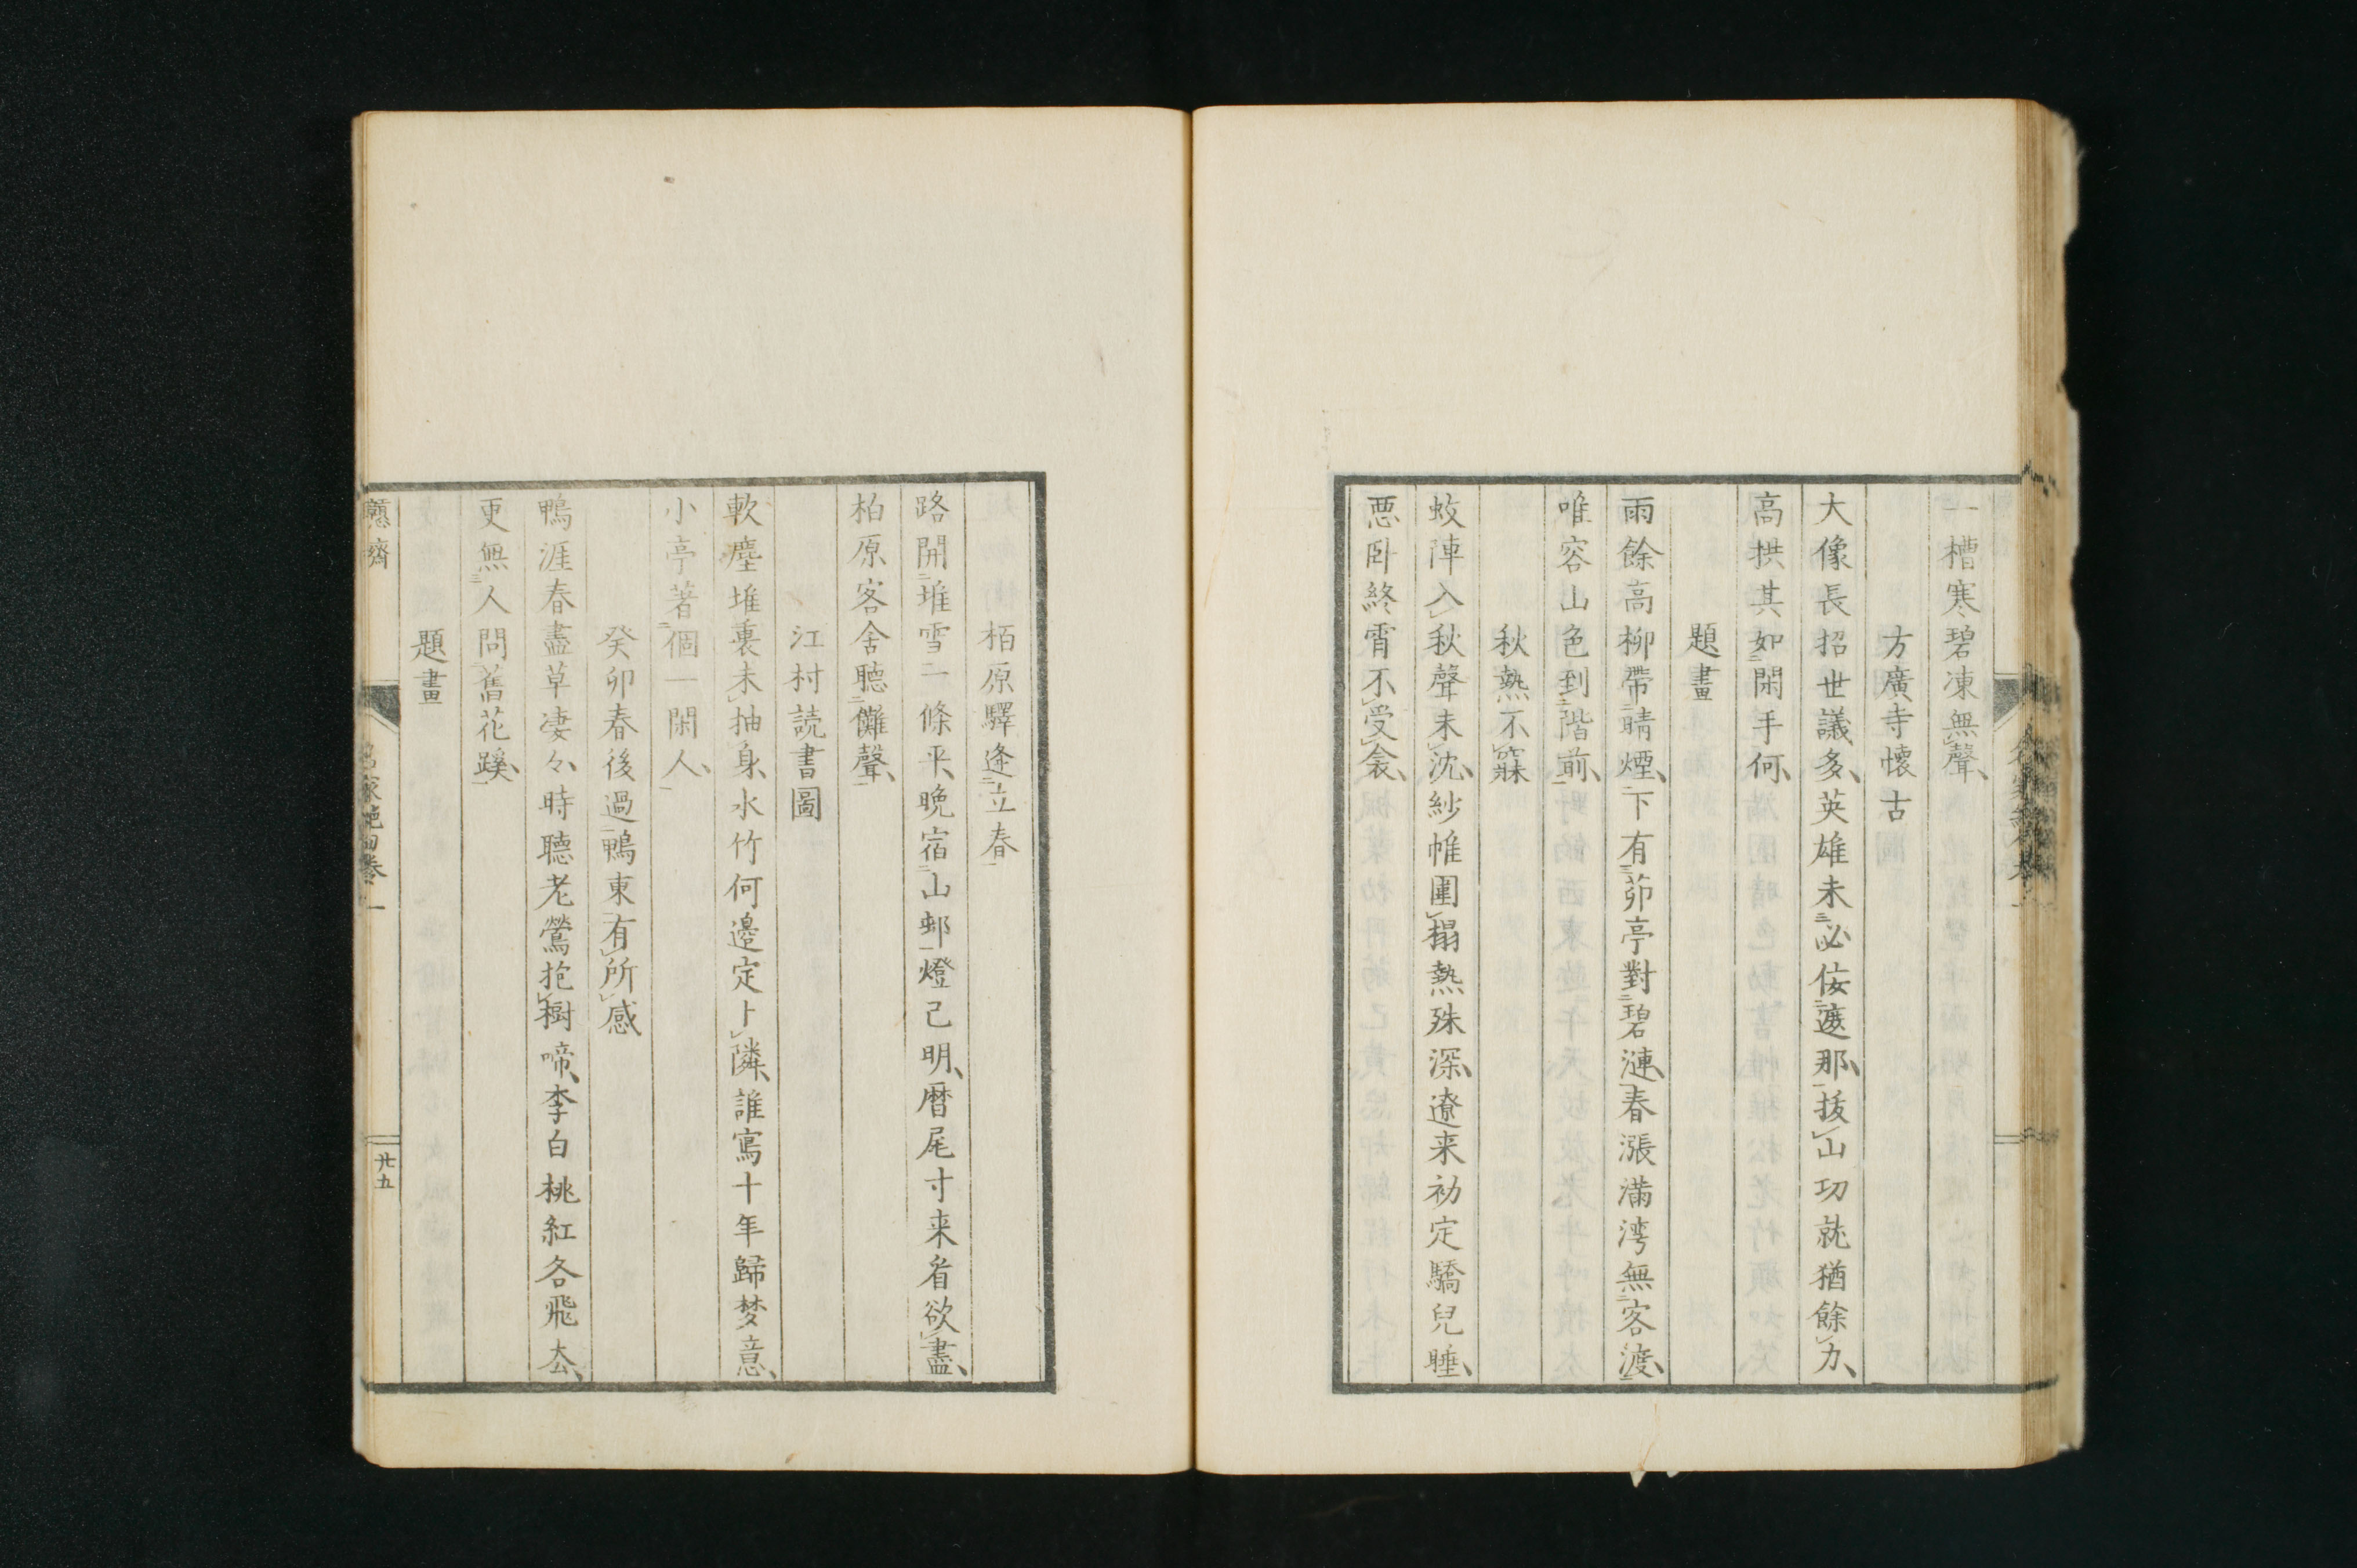 一槽寒碧凍無聲
方廣寺懷古
大像長招世議多英雄未必佞邅那拔山功就猶餘力
高拱其如閑手何
題畫
雨餘高柳帶晴煙下有茆亭對碧漣春漲滿湾無客渡
唯容山色到階前
秋熱不寐
蚊陣入秋聲未沈紗幮圍榻熱殊深遼来初定驕兒睡
悪卧終霄不受衾
栢原驛逢立春
路開堆雪一條平晚宿山邨燈已明暦尾寸来看欲盡
柏原客舍聽儺聲
江村読書圖
軟塵堆裏未抽身水竹何邊定卜隣誰寫十年歸梦意
小亭著個一閑人
癸卯春後過鴨東有所感
鴨涯春盡草凄々時聽老鶯抱樹啼李白桃紅各飛去
更無人問舊花蹊
題畫
名家絶句卷一
廿五